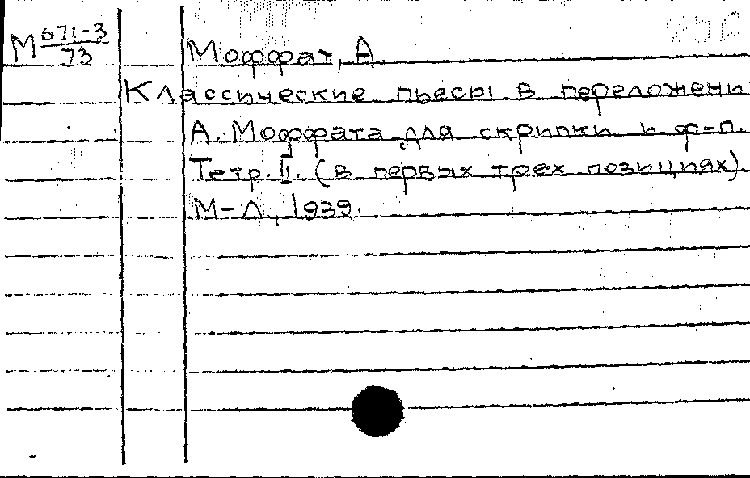 М 671-3/73
Моффат, А.
Классические пьесы в переложени
А. Моффата для скрипки и ф-п.
Тетр. II. (в первых трех позициях).
М-Л, 1939.